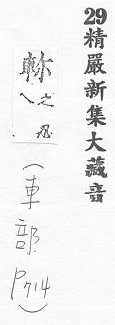 29精嚴新集大藏音
之忍
(車部 P714)